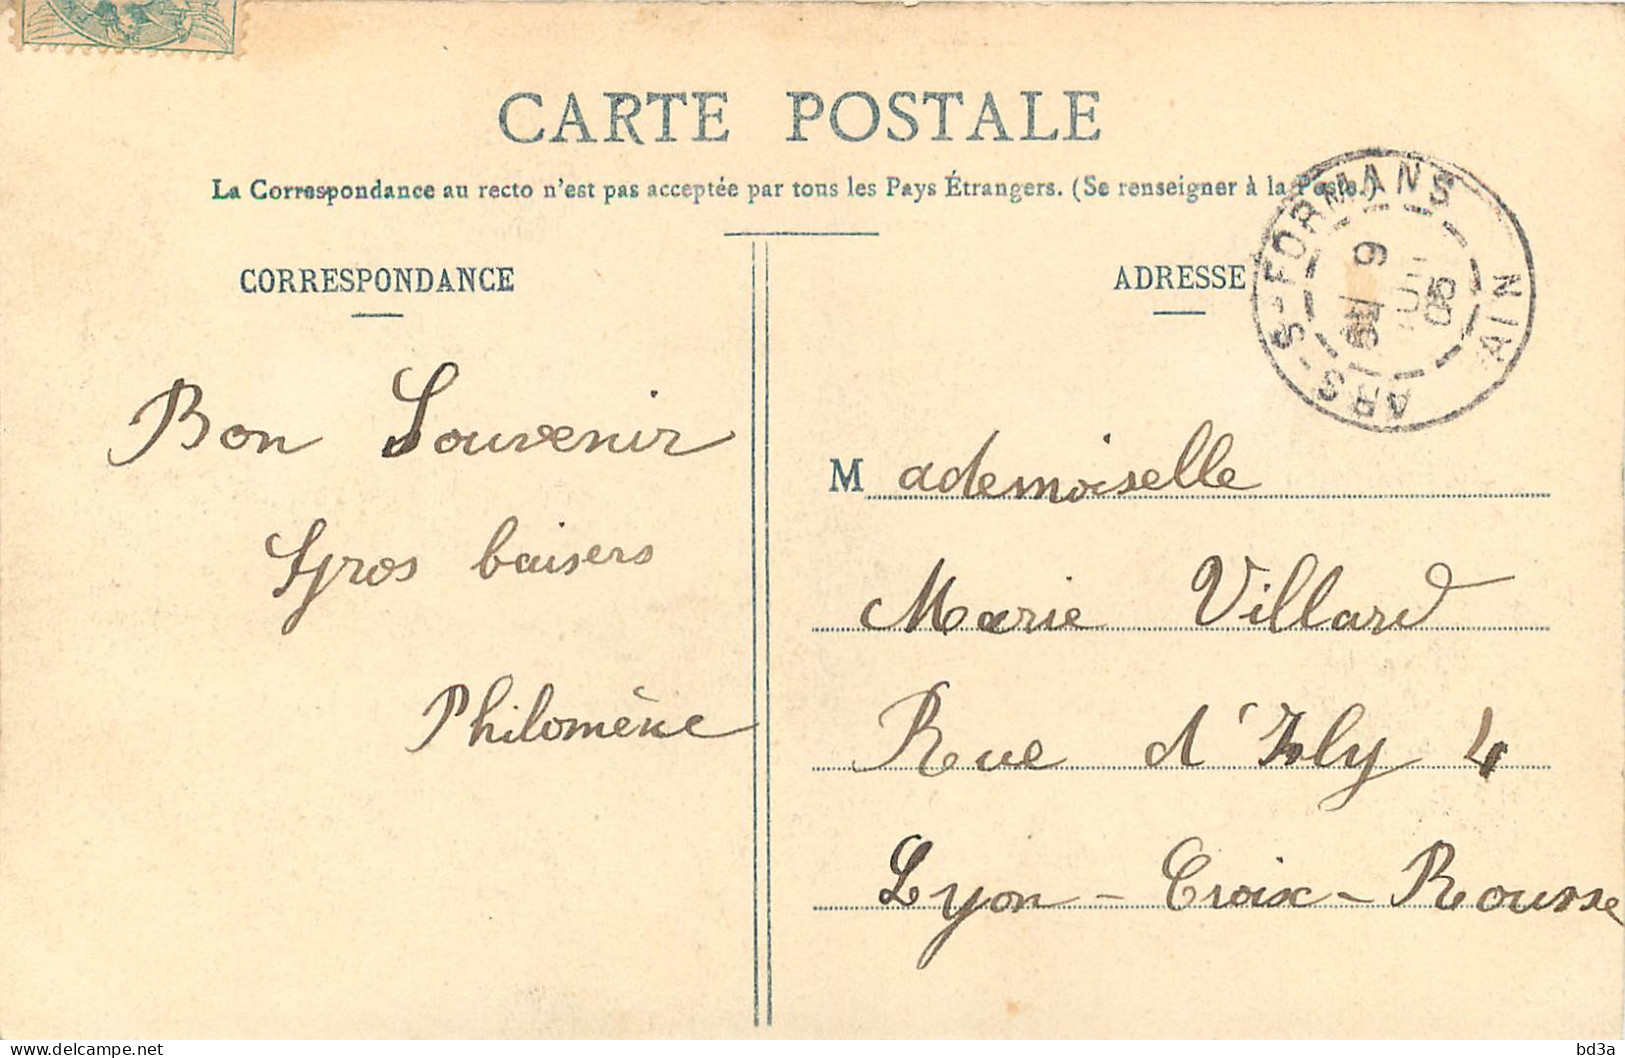 CARTE POSTALE
La Correspondance au recto n'est pas acceptée par tous les Pays Étrangers. (Se renseigner à la Poste.)
CORRESPONDANCE
Bon Souvenir
Gros baisers
Philomène
ADRESSE
ARS-S-FORMANS
AIN
9
05
Mademoiselle
Marie Villard
Rue d'Isly 4
Lyon-Croix-Rousse
bd3a